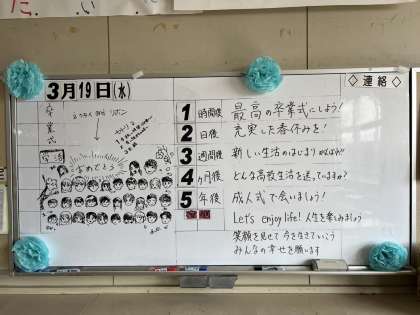 た い
3月19日(水)
◇連絡◇
卒業式
おめでとう
1時間後 最高の卒業式にしよう!
2日後 充実した春休みを!
3週間後 新しい生活のはじまり がんばれ!!
4ヶ月後 どんな高校生活を送っていますか?
5年後 成人式で会いましょう!
Let's enjoy life! 人生を楽しみましょう
笑顔を見せて 今を生きていこう
みんなの幸せを願います